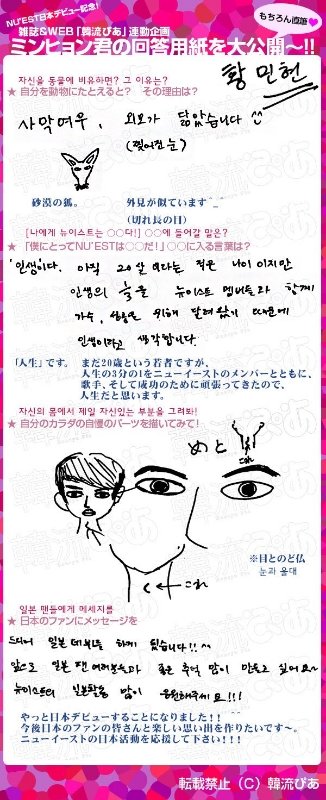 NU'EST日本デビュー記念!
雑誌&WEB「韓流ぴあ」連動企画
もちろん直筆
ミンヒョン君の回答用紙を大公開〜!!
황민현
자신을 동물에 비유하면? 그 이유는?
★ 自分を動物にたとえると？　その理由は？
사막여우, 외모가 닮았습니다 ^^
(찢어진 눈)
砂漠の狐。　外見が似ています^_^
(切れ長の目)
[나에게 뉴이스트는 ○○다!] ○○에 들어갈 말은?
★ 「僕にとってNU'ESTは○○だ！」○○に入る言葉は？
'인생'이다. 아직 20살 이라는 적은 나이 이지만
인생의 ⅓을 뉴이스트 멤버들과 함께
가수, 성공을 위해 달려왔기 때문에
인생이라고 생각합니다.
「人生」です。　まだ20歳という若者ですが、
人生の3分の1をニューイーストのメンバーとともに、
歌手、そして成功のために頑張ってきたので、
人生だと思います。
자신의 몸에서 제일 자신있는 부분을 그려봐!
★ 自分のカラダの自慢のパーツを描いてみて！
めと
これ
これ
※目とのど仏
눈과 울대
일본 팬들에게 메세지를
★ 日本のファンにメッセージを
드디어 일본 데뷔를 하게 됬습니다!! ^^
앞으로 일본 팬 여러분들과 좋은 추억 많이 만들고 싶어요~
뉴이스트의 일본활동 많이 응원해주세요!!!
やっと日本デビューすることになりました！！ ^^
今後日本のファンの皆さんと楽しい思い出を作りたいです〜。
ニューイーストの日本活動を応援して下さい！！！
転載禁止（C）韓流ぴあ